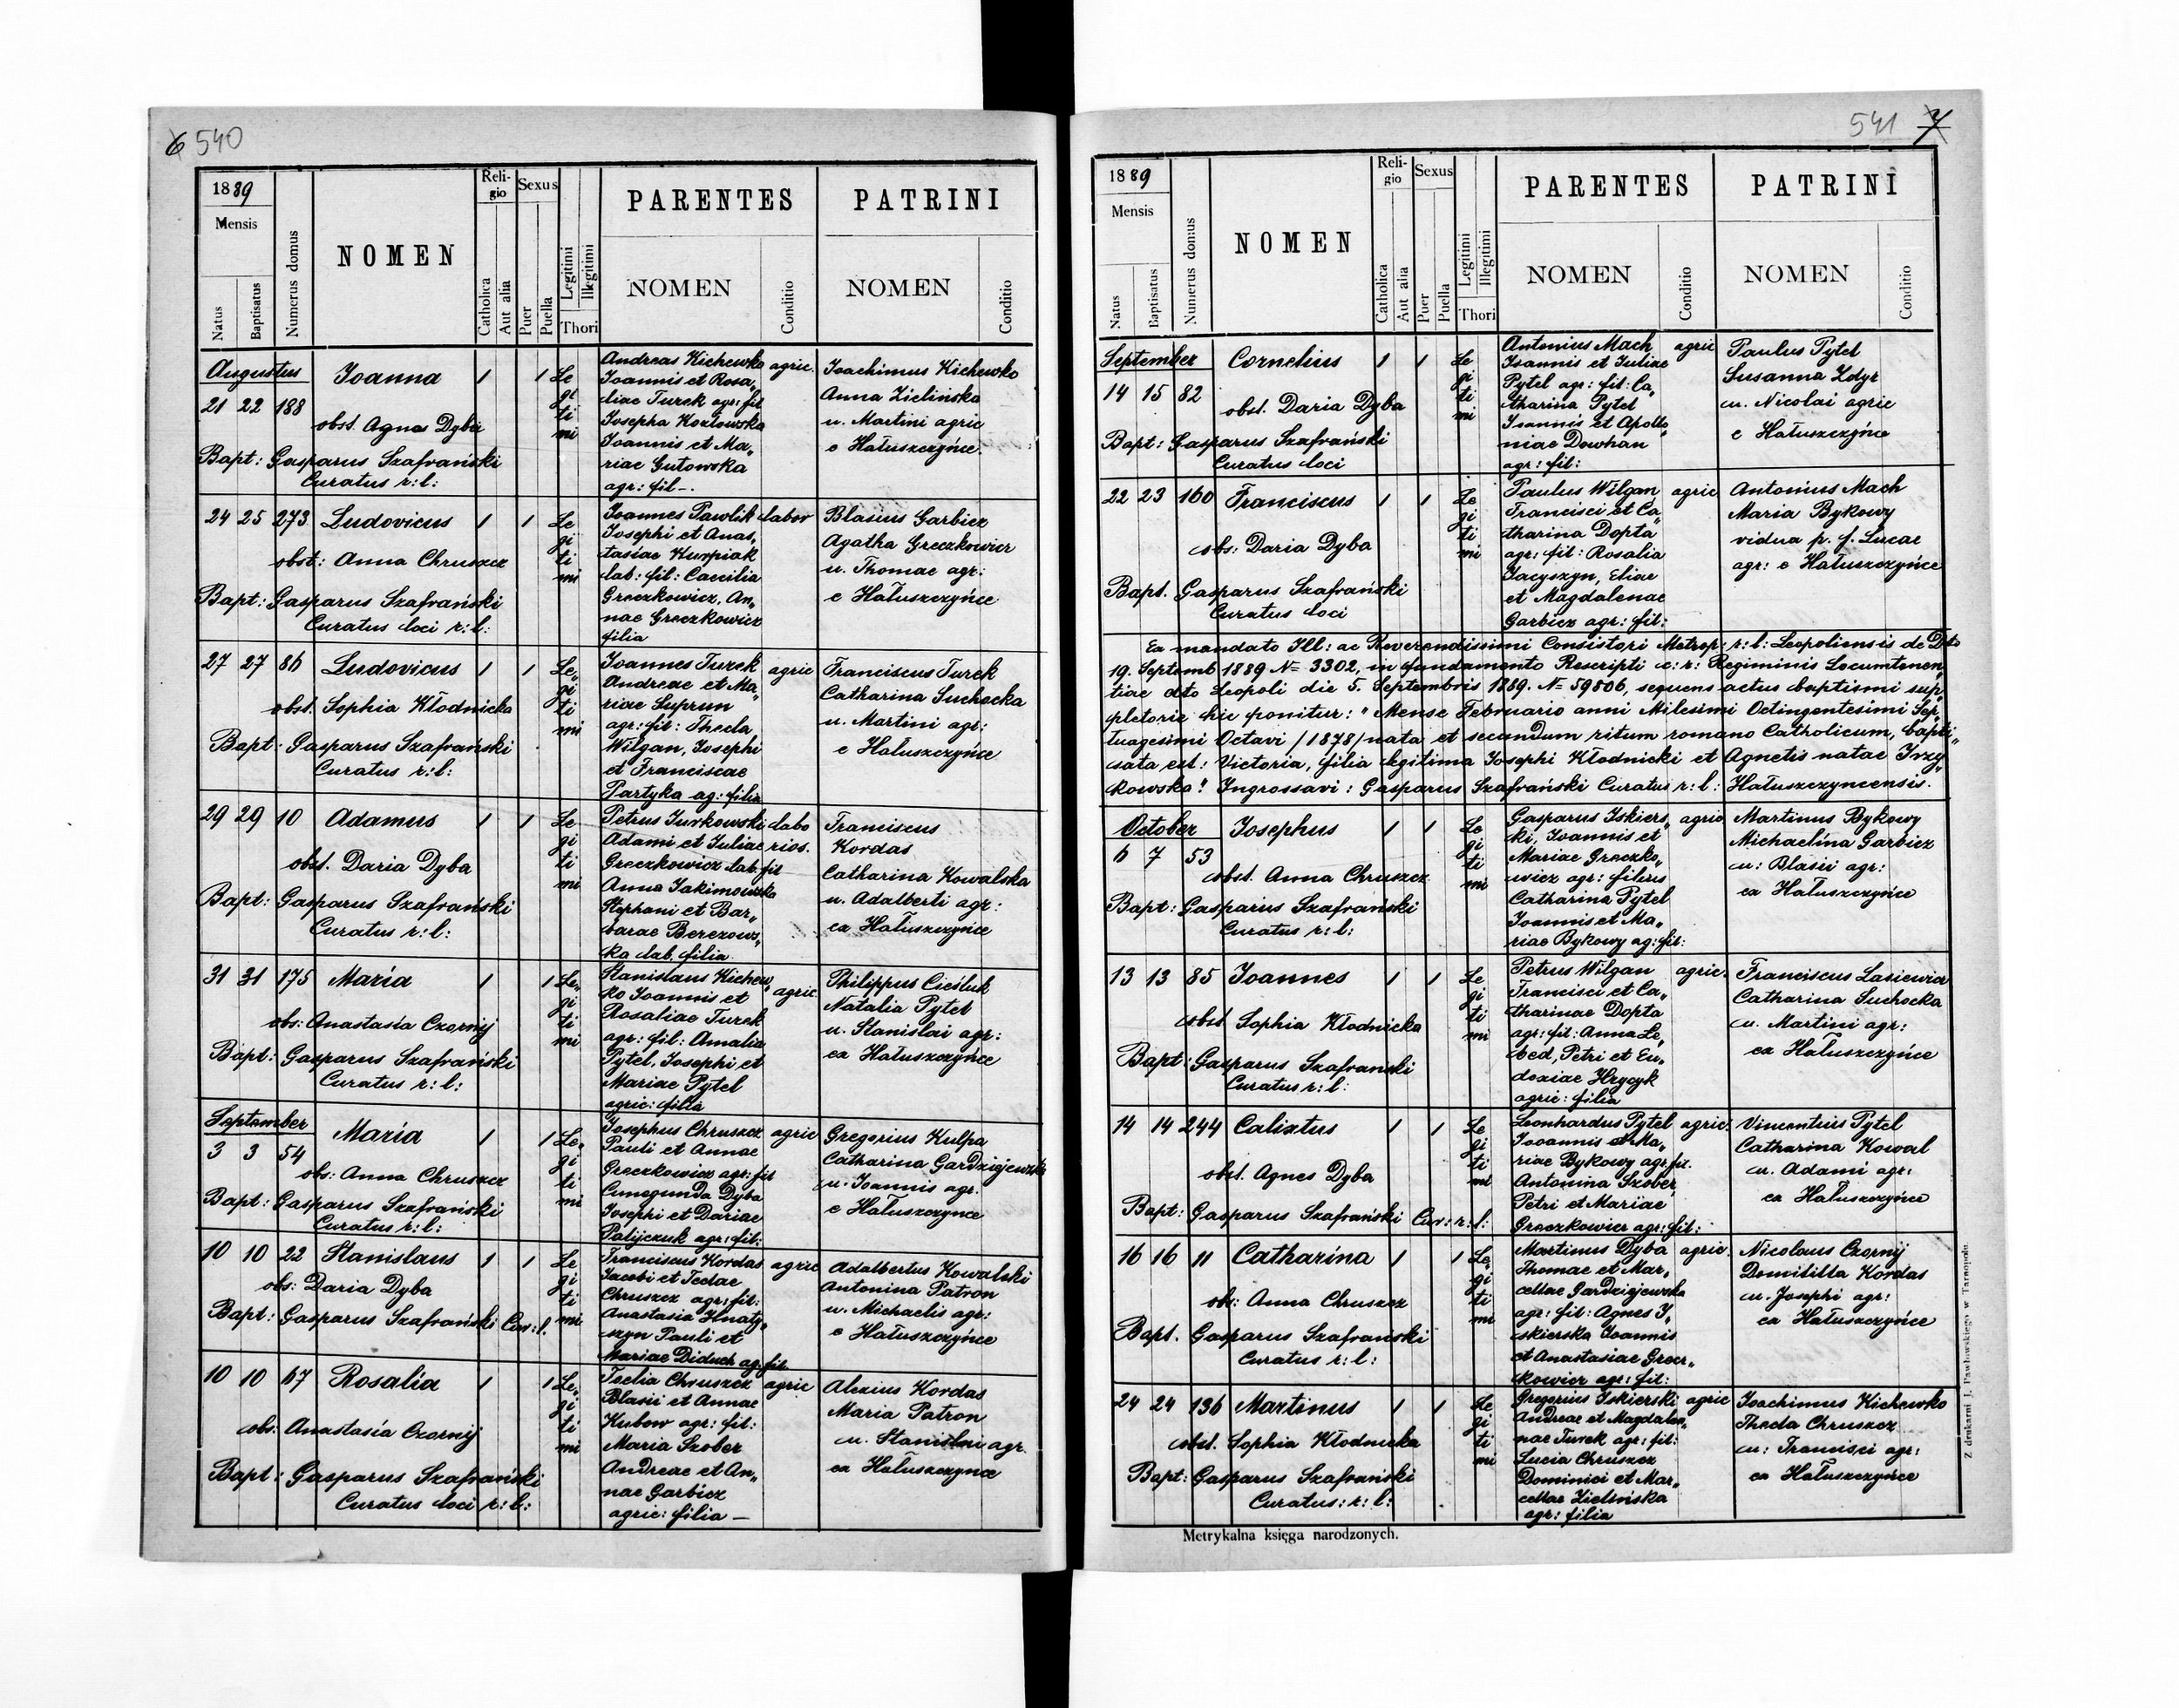 6 540
1889
Mensis
Natus
Baptisatus
Numerus domus
NOMEN
Religio
Catholica
Aut alia
Sexus
Puer
Puella
Legitimi
Illegitimi
Thori
PARENTES
NOMEN
Conditio
PATRINI
NOMEN
Conditio
Augustus
21 22 188 Joanna 1 1
obst. Agnes Dyba
Bapt: Gasparus Szafrański
Curatus r: l:
Le
gi
ti
mi
Andreas Kichewko agric.
Joannis et Rosa„
liae Turek agr: fil
Josepha Kozłowska
Joannis et Ma„
riae Gutowska
agr: fil-.
Joachimus Kichewko
Anna Zielińska
u. Martini agric
e Hałuszczyńce.
24 25 273. Ludovicus 1 1
obst: Anna Chruszcz
Bapt: Gasparus Szafrański
Curatus loci r: l:
Le
gi
ti
mi
Joannes Pawlik labor
Josephi et Anas„
tasiae Kurpiak
lab: fil: Caecilia
Greczkowicz, An„
nae Greczkowicz
filia
Blasius Garbicz
Agatha Greczkowicz
u. Thomae agr:
e Hałuszczyńce
27 27 86 Ludovicus 1 1
obst. Sophia Kłodnicka
Bapt: Gasparus Szafrański
Curatus r: l:
Le„
gi
ti
mi
Joannes Turek agric
Andreae et Ma„
riae Suprun
agr: fil: Thecla
Wilgan, Josephi
et Franciscae
Partyka ag: filia
Franciscus Turek
Catharina Suchocka
u. Martini agr:
e Hałuszczyńce
29 29 10 Adamus 1 1
obst. Daria Dyba
Bapt: Gasparus Szafrański
Curatus r: l:
Le
gi
ti
mi
Petrus Jurkowski labo
Adami et Juliae rios.
Greczkowicz lab: fil
Anna Jakimowska
Stephani et Bar„
barae Berezows„
ka lab. filia
Franciscus
Kordas
Catharina Kowalska
u. Adalberti agr:
ex Hałuszczyńce
31 31 175 Maria 1 1
obs: Anastasia Czornij
Bapt: Gasparus Szafrański
Curatus r: l:
Le„
gi
ti
mi
Stanislaus Kichew„
ko Joannis et agric.
Rosaliae Turek
agr: fil: Amalia
Pytel, Josephi et
Mariae Pytel
agric: filia
Philippus Cieśluk
Natalia Pytel
u. Stanislai agr:
ex Hałuszczyńce
September
3 3 54 Maria 1 1
obs: Anna Chruszcz
Bapt: Gasparus Szafrański
Curatus r: l:
Le„
gi
ti
mi
Josephus Chruszcz agric
Pauli et Annae
Greczkowicz agr: fil
Cunegunda Dyba
Josephi et Dariae
Palijczuk agr: fil:
Gregorius Kulpa
Catharina Gardziejewska
u. Joannis agr.
e Hałuszczynce
10 10 22 Stanislaus 1 1
obs: Daria Dyba
Bapt: Gasparus Szafrański Cur: l.
Le
gi
ti
mi
Franciscus Kordas agric
Jacobi et Teclae
Chruszcz agr: fil:
Anastasia Hnaty„
szyn Pauli et
Mariae Diduch ag: fil.
Adalbertus Kowalski
Antonina Patron
u. Michaelis agr:
e Hałuszczyńce
10 10 67 Rosalia 1 1
obs: Anastasia Czornij
Bapt: Gasparus Szafrański
Curatus loci r: l:
Le„
gi
ti
mi
Chruszcz agric
Blasii et Annae
Kubow agr: fil:
Maria Szober
Andreae et An„
nae Garbicz
agric: filia —
Alexius Kordas
Maria Patron
u. Stanislai agr.
ex Hałuszczynce
541 7
1889
Mensis
Natus
Baptisatus
Numerus domus
NOMEN
Religio
Catholica
Aut alia
Sexus
Puer
Puella
Legitimi
Illegitimi
Thori
PARENTES
NOMEN
Conditio
PATRINI
NOMEN
Conditio
September
14 15 82 Cornelius 1 1
obst. Daria Dyba
Bapt: Gasparus Szafrański
Curatus loci
Le
gi
ti
mi
Antonius Mach agric
Joannis et Juliae
Pytel agr: fil: Ca„
tharina Pytel
Joannis et Apollo„
niae Dowhan
agr: fil:
Paulus Pytel
Susanna Zdyr
u. Nicolai agric
e Hałuszczyńce
22 23 160 Franciscus 1 1
obs: Daria Dyba
Bapt. Gasparus Szafrański
Curatus loci
Le
gi
ti
mi
Paulus Wilgan agric
Francisci et Ca„
tharina Dopta
agr: fil: Rosalia
Jacyszyn, Eliae
et Magdalenae
Garbicz agr: fil:
Antonius Mach
Maria Bykowy
vidua p. f. Lucae
agr: e Hałuszczyńce
Ex mandato Ill: ac Reverendissimi Consistori Metrop: r: l: Leopoliensis de Dto
19. Septemb 1889 No 3302, in fundamento Rescripti c: r: Regiminis Locumtenen„
tiae dto Leopoli die 5. Septembris 1889. No 59806, sequens actus baptismi sup„
pletorie hic ponitur: "Mense Februario anni Milesimi Octingentesimi Sep„
tuagesimi Octavi /1878/ nata et secundum ritum romano Catholicum, bapti„
sata est: Victoria, filia legitima Josephi Kłodnicki et Agnetis natae Irzy„
kowska." Ingrossavi: Gasparus Szafrański Curatus r: l: Hałuszczyncensis.
October
6 7 53 Josephus 1 1
obst. Anna Chruszcz
Bapt: Gasparus Szafrański
Curatus r: l:
Le
gi
ti
mi
Gasparus Iskiers„ agric
ki, Joannis et
Mariae Greczko„
wicz agr: filius
Catharina Pytel
Joannis et Ma„
riae Bykowy ag: fil:
Martinus Bykowy
Michaelina Garbicz
u: Blasii agr:
ex Hałuszczyńce
13 13 85 Joannes 1 1
obst. Sophia Kłodnicka
Bapt: Gasparus Szafrański
Curatus r: l:
Le
gi
ti
mi
Petrus Wilgan agric.
Francisci et Ca„
tharinae Dopta
agr: fil: Anna Le„
bed, Petri et Eu„
doxiae Hrycyk
agric: filia
Franciscus Lasiewicz
Catharina Suchocka
u. Martini agr:
ex Hałuszczyńce
14 14 244 Calixtus 1 1
obst. Agnes Dyba
Bapt: Gasparus Szafrański Cur: r: l:
Le
gi
ti
mi
Leonhardus Pytel agric.
Jooannis et Ma„
riae Bykowy agr. fil.
Antonina Szober
Petri et Mariae
Greczkowicz agr: fil:
Vincentius Pytel
Catharina Kowal
u. Adami agr:
ex Hałuszczyńce
16 16 11 Catharina 1 1
obs: Anna Chruszcz
Bapt. Gasparus Szafrański
Curatus r: l:
Le„
gi
ti
mi
Martinus Dyba agric.
Thomae et Mar„
cellae Gardziejewska
agr: fil: Agnes I„
skierska Joannis
et Anastasiae Grecz„
kowicz agr: fil:
Nicolaus Czornij
Domitilla Kordas
u. Josephi agr:
ex Hałuszczyńce
24 24 136 Martinus 1 1
obst. Sophia Kłodnicka
Bapt: Gasparus Szafrański
Curatus: r: l:
Le
gi
ti
mi
Gregorius Iskierski agric
Andreae et Magdale„
nae Turek agr: fil:
Lucia Chruszcz
Dominici et Mar„
cellae Zielińska
agr: filia
Joachimus Kichewko
Thecla Chruszcz
u: Francisci agr:
ex Hałuszczyńce
Metrykalna księga narodzonych.
Z drukarni J. Pawłowskiego w Tarnopolu.